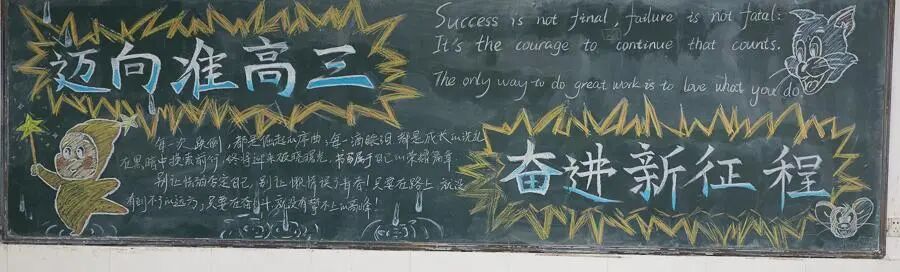 迈向准高三
Success is not final, failure is not fatal:
It's the courage to continue that counts.
The only way to do great work is to love what you do
每一次跌倒,都是低起的序曲;每一滴眼泪都是成长的洗礼
在黑暗中摸索前行,终将迎来破晓曙光,书写属于自己的荣耀篇章
别让怯懦否定自己,别让懒惰误了青春!只要在路上,就没
有到不了的远方;只要在奋斗,就没有攀不上的高峰!
奋进新征程